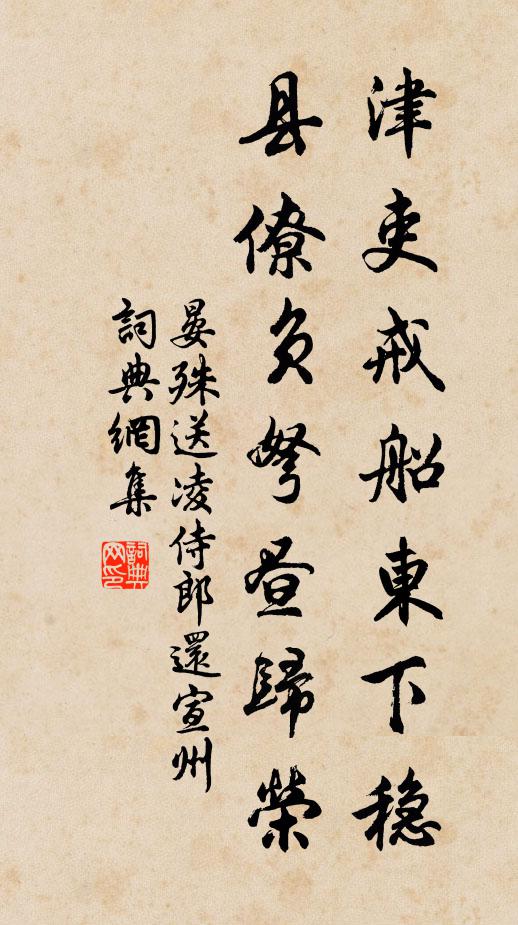 津吏戒船東下穩
县僚負弩昼歸榮
晏殊送凌侍郎還宣州
詞典網集
詞典網印